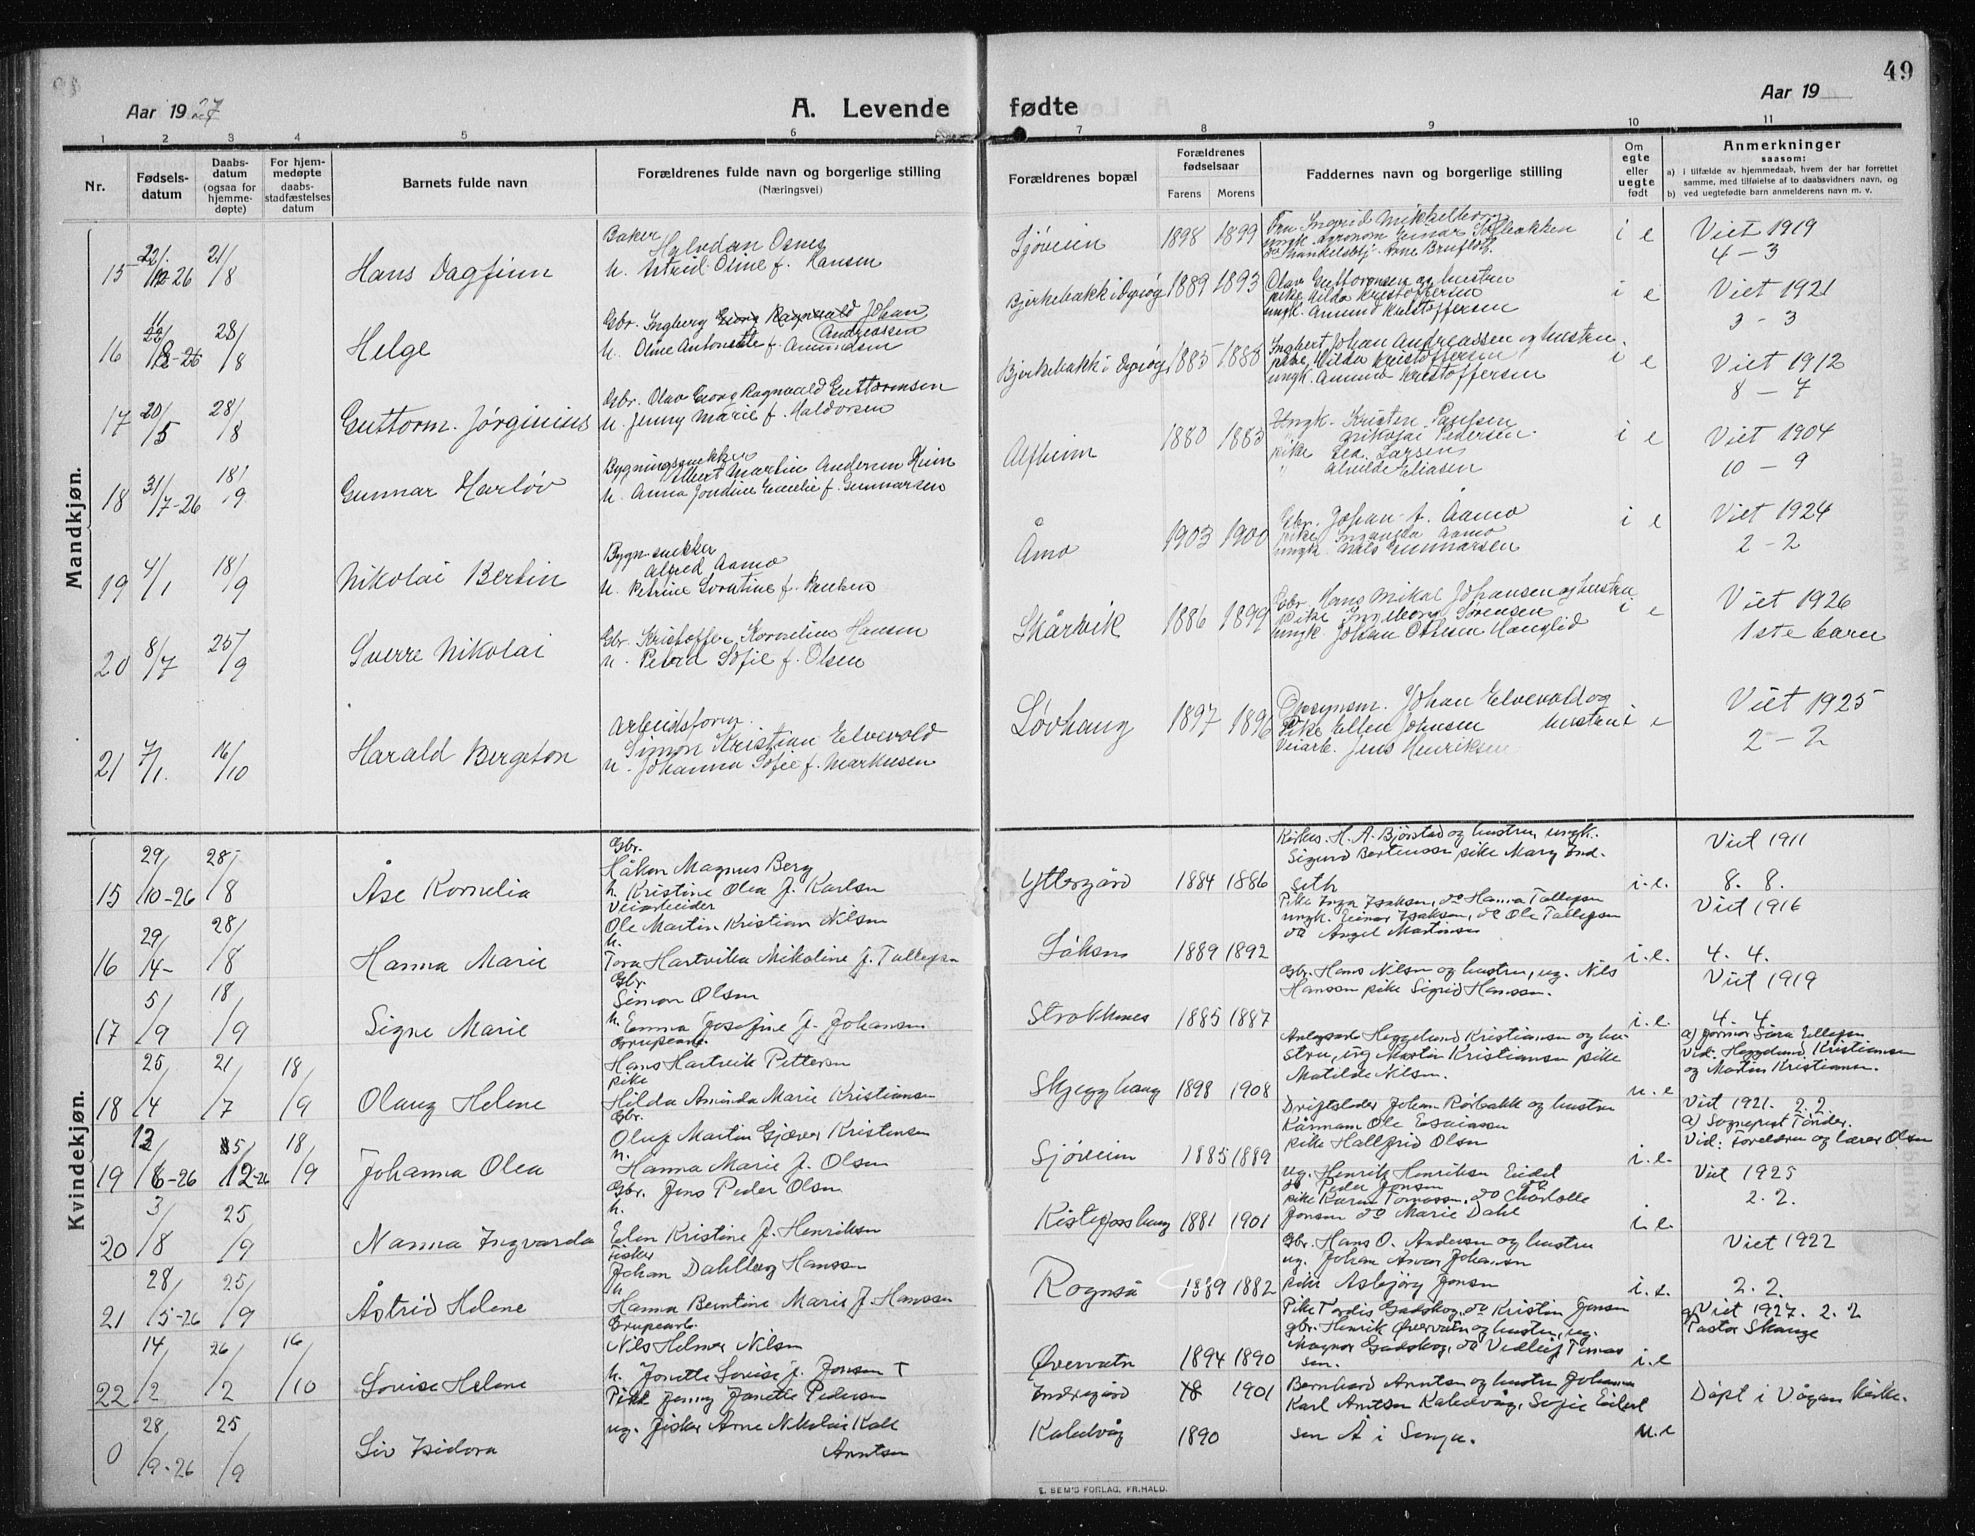 49
Aar 1927
A. Levende fødte
Aar 19
1 2 3 4 5 6 7 8 9 10 11
Nr.
Fødsels-
datum
Daabs-
datum
(ogsaa for
hjemme-
døpte)
For hjem-
medøpte
daabs-
stadfæstelses
datum
Barnets fulde navn
Forældrenes fulde navn og borgerlige stilling
(Næringsvei)
Forældrenes bopæl
Forældrenes
fødselsaar
Farens Morens
Faddernes navn og borgerlige stilling
Om
egte
eller
uegte
født
Anmerkninger
saasom:
a) i tilfælde av hjemmedaab, hvem der har forrettet
samme, med tilføielse af to daabsvidners navn, og
b) ved uegtefødte barn anmelderens navn m. v.
Mandkjøn.
15 21/8 Hans Dagfinn
Baker
Halvdan Osnes
h. Astrid Oline f. Hansen
Sjøveien 1898 1899
Fru Ingrid Mikkelborg
ungk. agronom Einar Solbakken
i e
Viet 1919
4 – 3
16 28/8 Helge
Gbr. Ingberg Georg Ragnvald Johan
Andreassen
h. Oline Antonette f. Amundsen
Bjirkebakk i Dyrøy 1889 1893
Olav Guttormsen og hustru
pike Hilda Kristoffersen
ungk. Amund Kristoffersen
i e
Viet 1921
3 – 3
17 20/5 28/8 Guttorm Jørginius
Gbr. Olav Georg Ragnvald Guttormsen
h. Jenny Marie f. Haldorsen
Bjirkebakk i Dyrøy 1885 1885
Ingbert Johan Andreassen og hustru
pike Hilda Kristoffersen
ungk. Amund Kristoffersen
i e
Viet 1912
8 – 7
18 31/7-26 18/9 Gunnar Harløv
Bygningssnekker
Albert Martin Andersen Heim
h. Anna Jondine Emelie f. Gunnarsen
Alfheim 1880 1883
Ungk. Kristen Paulsen
" Nikolai Pedersen
pike Led. Larsen
" Alvilde Eliasen
i e
Viet 1904
10 – 9
19 4/1 18/9 Nikolai Bertin
Bygn. snekker
Alfred Aamo
h. Petrine Lorntine f. Paulsen
Åmo 1903 1900
Gbr. Johan A. Aamo
pike Ingangda Aamo
ungk. Nils Gunnarsen
i e
Viet 1924
2 – 2
20 8/7 25/9 Sverre Nikolai
Gbr. Kristoffer Kornelius Hansen
h. Petra Sofie f. Olsen
Skårvik 1886 1899
Gbr. Hans Mikal Johansen og hustru
Pike Ingeborg Sørensen
ungk. Johan Othesen Hanglid
i e
Viet 1926
1ste barn
21 7/1. 16/10 Harald Bergeton
Arbeidsform.
Simon Kristian Elvevold
h. Johanna Sofie f. Markusen
Løvhaug 1897 1896
Opsynsm. Johan Elvevold og
hustru
Pike Ellen Johnsen
Veiarb. Jens Henriksen
i e
Viet 1925
2 – 2
Kvindekjøn.
15 29/10-26 28/8 Åse Kornelia
Gbr.
Håkon Magnus Berg
h. Kristine Olea f. Karlsen
Yttergård 1884 1886
Kirkes. H. A. Bjørstad og hustru, ungk.
Sigurd Bertenssen pike Mary Ind-
seth
i. e.
Viet 1911
8. 8.
16 29/4- 28/8 Hanna Marie
Veiarbeider
Ole Martin Kristian Nilsen
h.
Tora Hartvika Mikoline f. Tallefsen
Løksen 1889 1892
Pike Inga Isaksen, do Hanna Tallefsen
ungk. Einar Isaksen, do Ole Tallefsen
do Angel Martinsen
i. e.
Viet 1916
4. 4.
17 5/9 18/9 Signe Marie
Gbr.
Simon Olsen
h. Emma Josefine f. Johansen
Strokknes 1885 1887
Gbr. Hans Nilsen og hustru, ug. Nils
Hanssen pike Sigrid Hanssen.
i. e.
Viet 1919
4. 4
18 25/4 21/7 18/9 Olaug Helene
Grupearb.
Hans Hartvik Pettersen
pike
Hilda Aminda Marie Kristiansen
Skjegghaug 1898 1908
Anlegsarb Heggelund Kristiansen og hu-
stru, ug Martin Kristiansen pike
Matilde Nilsen.
u. e
a) Jormor Sara Ellefsen
Vid: Heggelund Kristiansen
og Martin Kristiansen.
19 18/9 Johanna Olea
Gbr.
Oluf Martin Gjæver Kristensen
h.
Hanna Marie f. Olsen
Sjøveien 1885 1889
Driftsleder Johan Rørbakk og hustru
Kårmann Ole Esaiassen
pike Hallfrid Olsen
i. e.
Viet 1921. 2 2.
a) Sogneprest Tønder.
Vid: Foreldren og lærer Olsen
20 3/8 25/9 Nanna Ingvarda
Gbr. Jens Peder Olsen
h.
Elen Kristine f. Henriksen
Kistefosshaug 1881 1901
ug. Henrik Henriksen Eidet
do Peder Jonsen
pike Karen Tomassen, do Charlotte
Jonsen do Marie Dahl
i. e.
Viet 1925
2. 2.
21 28/5-26 25/9 Åstrid Helene
Fisker
Johan Dahlberg Hanssen
h.
Hanna Berntine Marie f. Hanssen
Rognså 1889 1882
Gbr. Hans O. Andersen og hustru
ug. Johan Anvar Johansen
pike Asbjørg Jensen
i. e.
Viet 1922
2. 2.
22 14/2 26/2 16/10 Lovise Helene
Grupearb.
Nils Helmer Nilsen
h. Jonette Lovise f. Jonsen †
Øvervatn 1894 1890
Pike Tordis Gadskog, do Kristin Jonsen
gbr. Henrik Øvervatn og hustru, ug.
Magnor Gadskog, do Vedleif Tomas
sen.
i. e
a) Viet 1927. 2. 2
Pastor Skauge
0 28/9-26 25/9 Liv Isidora
Pike Jenny Janette Pedersen
ug. fisker Arne Nikolai Kall
Arntsen
Indregård 1901
Kaldvåg 1890
Bernhard Arntsen og hustru Johanna
Karl Arntsen Kaldvåg, Sofie Eilert
sen Å i Senja.
u. e
Døpt i Vågan kirke.
E. SEM'S FORLAG, FR.HALD.